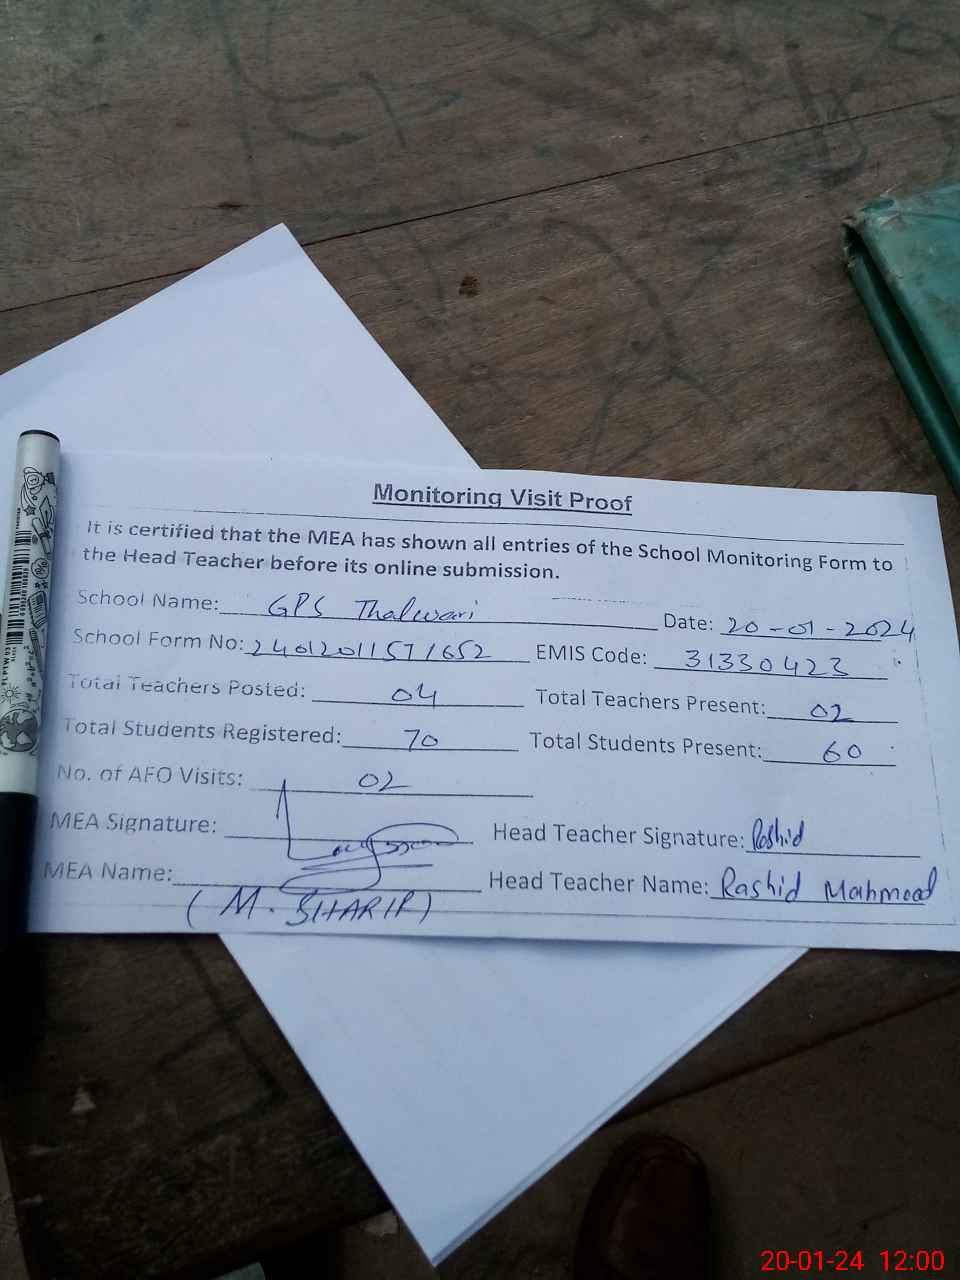 Monitoring Visit Proof
It is certified that the MEA has shown all entries of the School Monitoring Form to
the Head Teacher before its online submission.
School Name: GPS Thalwari Date: 20-01-2024
School Form No: 24012011571652 EMIS Code: 31330423
Total Teachers Posted: 04 Total Teachers Present: 02
Total Students Registered: 70 Total Students Present: 60
No. of AFO Visits: 02
MEA Signature: Head Teacher Signature: Rashid
MEA Name: Head Teacher Name: Rashid Mahmood
(M. SHARIF)
20-01-24 12:00